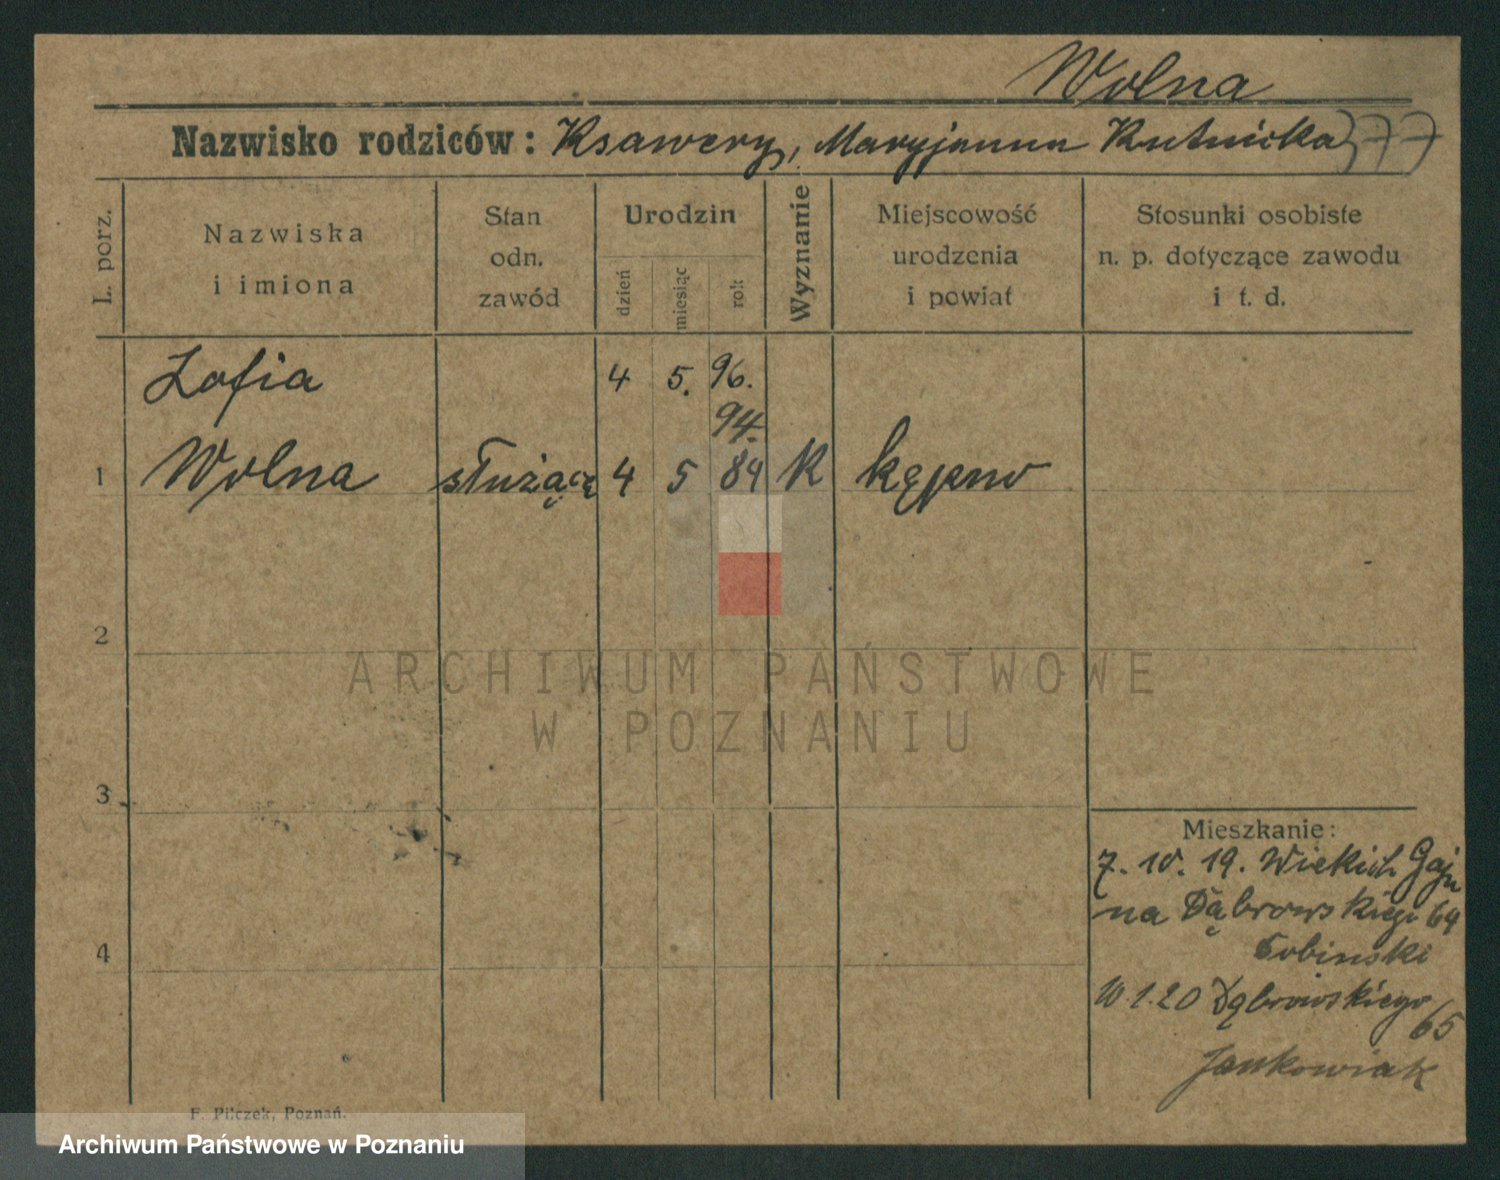 Wolna
Nazwisko rodziców: Ksawery, Maryjanna Rutnicka 377
L. porz.
Nazwiska
i imiona
Stan
odn.
zawód
Urodzin
dzień
miesiąc
rok
Wyznanie
Miejscowość
urodzenia
i powiat
Stosunki osobiste
n. p. dotyczące zawodu
i t. d.
Zofia 4 5. 96.
94.
1 Wolna służąca 4 5 84 K kępno
2
ARCHIWUM PAŃSTWOWE
W POZNANIU
3
Mieszkanie:
7. 10. 19.
na Dąbrowskiego 64
4
10.1.20 Dąbrowskiego
65
Jankowiak
F. Pilczek, Poznań.
Archiwum Państwowe w Poznaniu